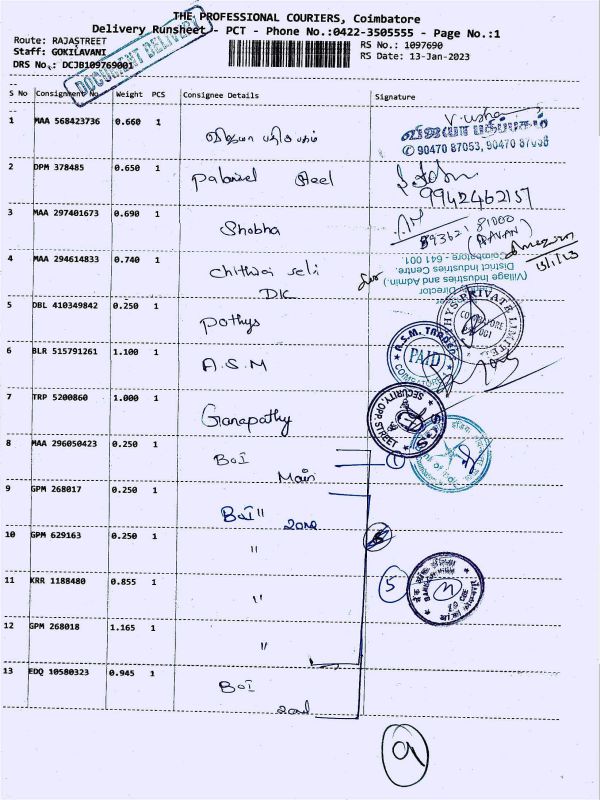 THE PROFESSIONAL COURIERS, Coimbatore
Delivery Runsheet - PCT - Phone No.:0422-3505555 - Page No.:1
Route: RAJASTREET
RS No.: 1097690
Staff: GOKILAVANI
RS Date: 13-Jan-2023
DRS No.: DCJB109769001
DOCUMENT DELIVERY
S No Consignment No Weight PCS Consignee Details Signature
1 MAA 568423736 0.660 1
V. usha
விஜயா பதிப்பகம்
✆ 90470 87053, 90470 87058
2 DPM 378485 0.650 1 Steel
9942462157
3 MAA 297401673 0.690 1 Shobha
81000
4 MAA 294614833 0.740 1 DIC
13/1/23
(Village Industries and Admin.)
District Industries Centre,
Coimbatore - 641 001
5 DBL 410349842 0.250 1 Pothys
PRIVATE LIMITED
6 BLR 515791261 1.100 1 A.S.M
A.S.M. TRADERS PAID
7 TRP 5200860 1.000 1 Ganapathy
SECURITY OPP STREET SCS
8 MAA 296050423 0.250 1 BOI Main
1
9 GPM 268017 0.250 1 BOI " 2nd
10 GPM 629163 0.250 1 "
11 KRR 1188480 0.855 1 "
5
12 GPM 268018 1.165 1 "
13 EDQ 10580323 0.945 1 BOI 2nd
9